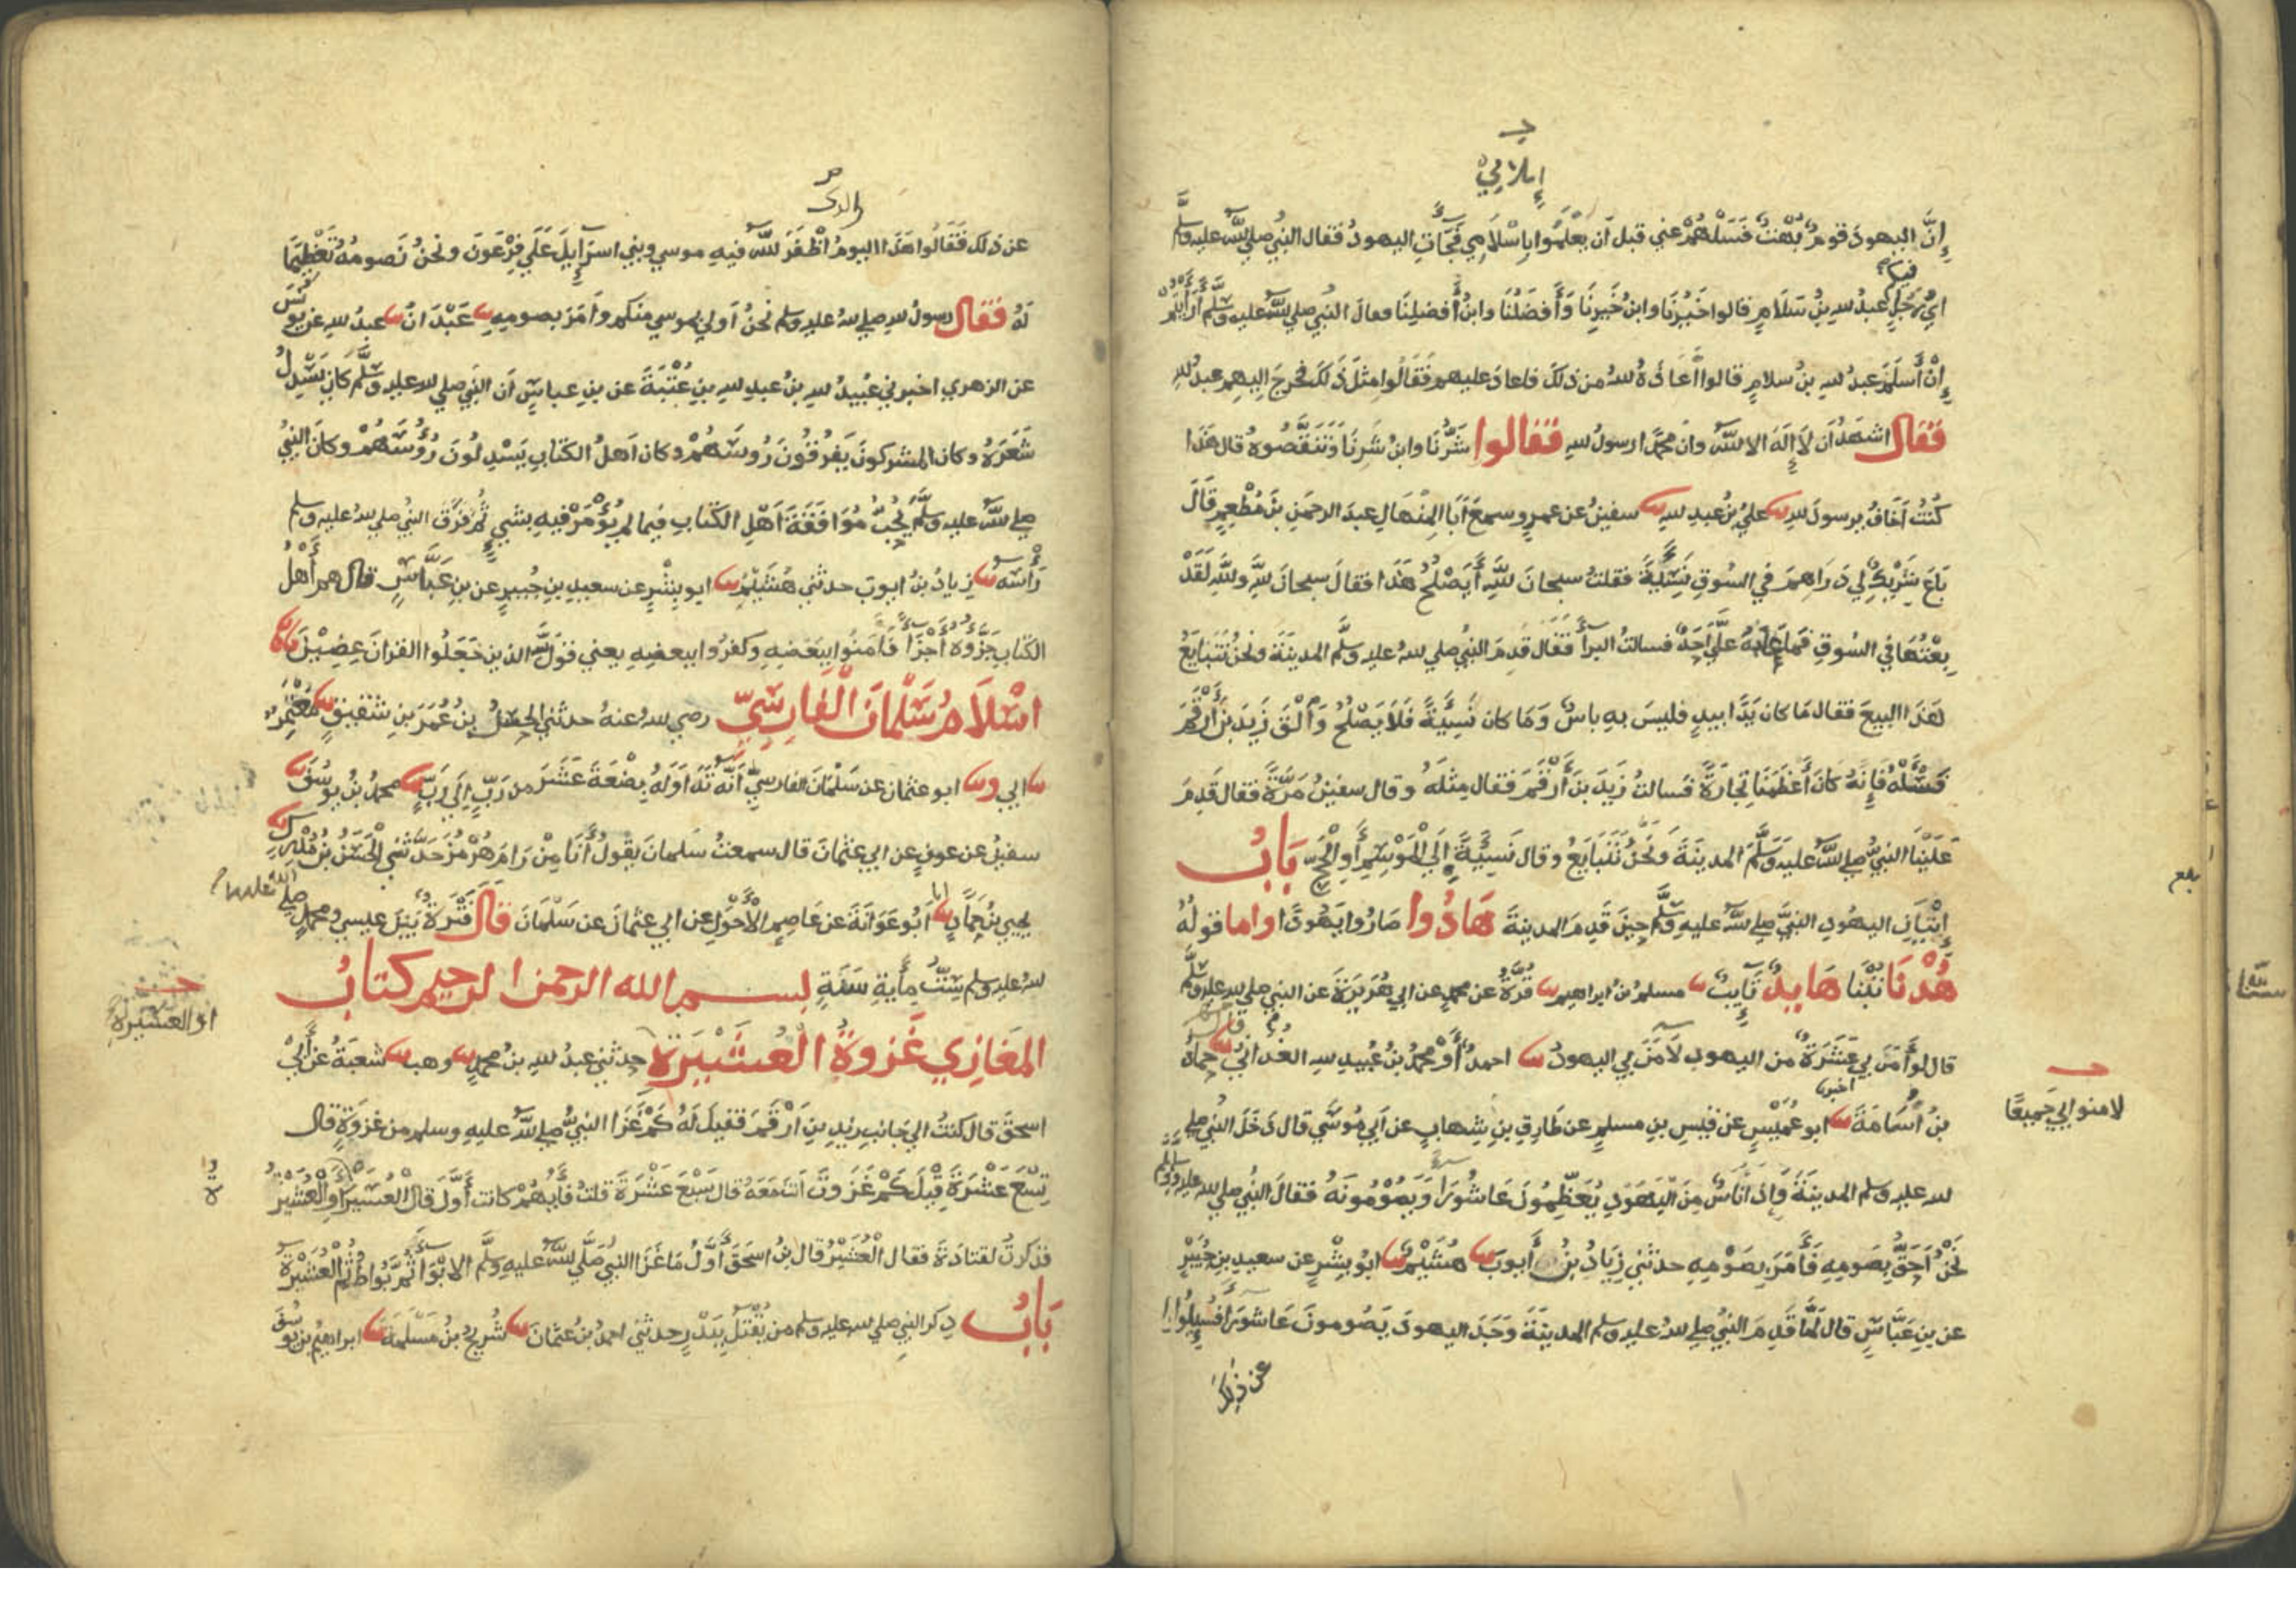 إِنَّ اليهودَ قومٌ بُهْتٌ فَسَلْهُمْ عني قبل أن يَعْلَمُوا بِإِسْلَامِي فَجَآتِ اليهودُ فقال النبيُ صلي اللَّه عليه وسلَّم
ايُّ رَجُلٍ عبدُ لله بنُ سَلَامٍ فيكم قالوا خَيْرُنَا وابنُ خَيْرِنَا وَأَفضَلُنَا وابنُ أَفضلِنَا فقال النبي صلي اللَّه عليه وسلَّم أَرَأَيْتُمْ
إِنْ أَسلَمَ عبدُ لله بنُ سلامٍ قالوا أَعَاذَهُ لله من ذلك فاعادَ عليهم فَقَالُوا مثلَ ذَلكَ فخرجَ إليهم عبدُ لله
فَقَالَ اشهَدُ أن لَا إِلَهَ الا اللَّه وان محمَّدا رسولُ لله فَقَالُوا شَرُّنَا وابنُ شَرِنَا وَتَنَقَّصُوهُ قال هَذَا
كُنْتُ أَخَافُ يرسولَ لله ثنا عليُ بنُ عبدِ لله ثنا سفينُ عن عمرٍو سمعَ أَبَا المِنْهَالِ عبدَ الرحمَنِ بنَ مُطْعِمٍ قَالَ
بَاعَ شَرِيْكٌ لي دَرَاهِمَ في السُّوقِ نَسِيَّةً فقلتُ سبحانَ للَّهِ أَيَصْلُحُ هَذَا فقالَ سبحانَ للَّهِ وللَّهِ لَقَدْ
بِعْتُهَا في السُّوقِ فَمَا عَابَهُ عَلَيَّ أَحَدٌ فسالتُ البرأ فَقَالَ قدِمَ النبيُ صلي لله عليه وسلَّم المدينَةَ ونحنُ نَتَبَايَعُ
هَذَا البيعَ فقال مَا كان يَدًا بيدٍ فليسَ بهِ باسٌ وَمَا كان نَسِيَّةً فَلَا يَصْلُحُ وَالْقَ زَيدَ بنَ أَرْقَمَ
فَسْئَلْهُ فَإِنَهُ كَانَ أَعْظَمَنَا تِجَارَةً فسالتُ زَيدَ بنَ أَرْقَمَ فَقال مِثلَهُ وقال سفينُ مَرَّةً فقال قَدِمَ
عَلَيْنَا النبيُّ صلي للَّه عليه وَسَلَّمَ المدينَةَ وَنَحْنُ نَتَبَايَعُ وقال نَسِيَّةً إِلَي الْمَوْسِمِ أَوِ الْحَجِّ بَابُ
إِتْيَانِ اليهُودِ النبيَّ صلي للَّه عليهِ وسلَّم حينَ قَدِمَ المدينةَ هَادُوا صَارُوا يَهُودًا واما قولُهُ
هُدْنَا تُبْنَا هَايدٌ تَايبٌ ثنا مسلمُ بنُ ابراهيم ثنا قُرَّةُ عن محمدٍ عن ابي هُرَيرَةَ عن النبي صلي لله عليه وسلَّم
قال لو أَمَنَ بي عَشَرَةٌ من اليهود لَأَمَنَ بي اليهودُ ثنا احمدُ أَوْ محمدُ بنُ عُبيدِ لله الغُدَانيُ ثنا حمادُ
بنُ أُسَامَةَ ثنا ابو عُمَيْسٍ عن قَيْسِ بنِ مسلمٍ عن طَارِقِ بنِ شِهابٍ عن أَبي مُوسَي قال دَخَلَ النبيُ صلي
لله عليهِ وسلم المدينَةَ وَإِذَا أُنَاسٌ مِنَ الْيَهُودِ يُعَظِّمُونَ عَاشُورَآ وَيَصُوْمُونَهُ فقالَ النبيُ صلي لله عليه وسلم
نَحْنُ أَحَقُّ بِصَومِهِ فَأَمَرَ بِصَوْمِهِ حدثَني زِيَادُ بنُ أَيوبَ ثنا هُشَيْمٌ ثنا ابُو بِشْرٍ عن سعيدِ بنِ جُبَيْرٍ
عن بنِ عَبَّاسٍ قال لَمَّا قَدِمَ النبيُ صلي لله عليه وسلم المدينَةَ وَجَدَ اليهودَ يَصُومونَ عَاشورَآ فَسُيِلُوا
عن ذلك
إبلامي
لامنوا بي جَميعًا
بلع
عن ذلك فَقَالُوا هَذَا اليومُ أَظْفَرَ للَّه فيهِ موسي وبني اسرَآيِلَ عَلَي فِرْعَونَ ونحنُ نَصومُهُ تَعْظِيمًا
لَهُ فَقَالَ رسولُ لله صلي لله عليه وسلم نحنُ أَولي بموسي منكم وأَمَرَ بصومِهِ ثنا عَبْدَانُ ثنا عبدُ لله عن يونس
عن الزهري اخبرني عُبَيدُ لله بنُ عبدِ لله بنِ عُتْبَةَ عن بنِ عباسٍ أن النبي صلي لله عليه وسلَّم كان يَسْدِلُ
شَعَرَهُ وكان المشركونَ يَفرُقُونَ رُوسَهُمْ وكان أَهلُ الكتابِ يَسْدِلُونَ رُؤُسَهُمْ وكان النبيُ
صلي للَّه عليه وسلَّم يُحِبُّ مُوَافَقَةَ أَهْلِ الكتابِ فيما لم يُؤْمَرْ فيهِ بشيءٍ ثُم فَرَقَ النبيُ صلي لله عليه وسلم
رَأْسَه ثنا زيادُ بنُ ايوبَ حدثني هُشَيْمٌ ثنا ابو بِشْرٍ عن سعيدِ بنِ جُبيرٍ عن بنِ عَبَّاسٍ قال هم أَهْلُ
الكتاب جَزَّؤُهُ أَجْزَآً فَأَمَنُوا ببَعْضِهِ وكفرُوا ببعضِهِ يعني قولَ للَّه الذين جَعَلُوا القرانَ عِضِيْنَ باب
اسْلَامُ سَلْمَانَ الْفَارِسِيِّ رضي لله عنهُ حدثني الحسنُ بنُ عُمَرَ بنِ شقيقٍ ثنا مُعْتَمِرٌ
ثنا ابي وثنا ابو عثمانَ عن سَلْمَانَ الفارسيِّ أَنَّهُ تَدَاوَلَهُ بِضْعَةَ عَشَرَ من رَبٍّ إِلَي رَبٍّ ثنا محمدُ بنُ يوسُفَ ثنا
سفينُ عن عوفٍ عن ابي عثمانَ قال سمعتُ سَلمانَ يقولُ أَنَا مِنْ رَامَ هُرْمُزَ حَدَّثني الْحَسَنُ بنُ مُدْرِكٍ ثنا
يحيي بنُ حمادٍ ابنا أَبُو عَوَانَةَ عن عَاصِمٍ الْأَحْوَلِ عن ابي عثمانَ عن سَلْمَانَ قَالَ فَتْرَةٌ بَيْنَ عيسي ومحمدٍ صلي
لله عليه وسلم سِتُّ مِأَيةِ سَنَةٍ بسم الله الرحمن الرحيم كتابُ
المَغَازِي غَزوةُ الْعُشَيْرَةِ حدثني عبدُ لله بنُ محمدٍ ثنا وهب ثنا شعبَةُ عن أَبيْ
اسحقَ قال كنتُ الي جَانبِ زيدِ بنِ أَرْقَمَ فقيلَ لَهُ كَمْ غَزَا النبيُّ صلي للَّه عليهِ وسلم من غزوَةٍ قال
تِسْعَ عَشْرَةَ قِيْلَ كَمْ غَزَوْتَ انتَ مَعَهُ قال سَبْعَ عَشْرَةَ قلتُ فَأَيُّهُمْ كانت أَوَّلَ قال الْعُسَيْرَاوِ الْعُشَيْرُ
فذكرتُ لقتادَةَ فقال الْعُشَيْرُ قال بنُ اسحقَ أَوَّلُ مَا غَزَا النبيُ صَلَّي للَّه عليهِ وسلَّم الابْوَآ ثُمَّ بُوَاطُ ثُمَّ الْعُشَيْرَةُ
بَابُ ذكر النبي صلي لله عليه وسلم من يُقْتَلُ ببَدْرٍ حدثني احمدُ بنُ عثمانَ ثنا شُريحُ بنُ مَسْلمَةَ ثنا ابراهيمُ بنُ يوسُفَ
اوالعشيرة